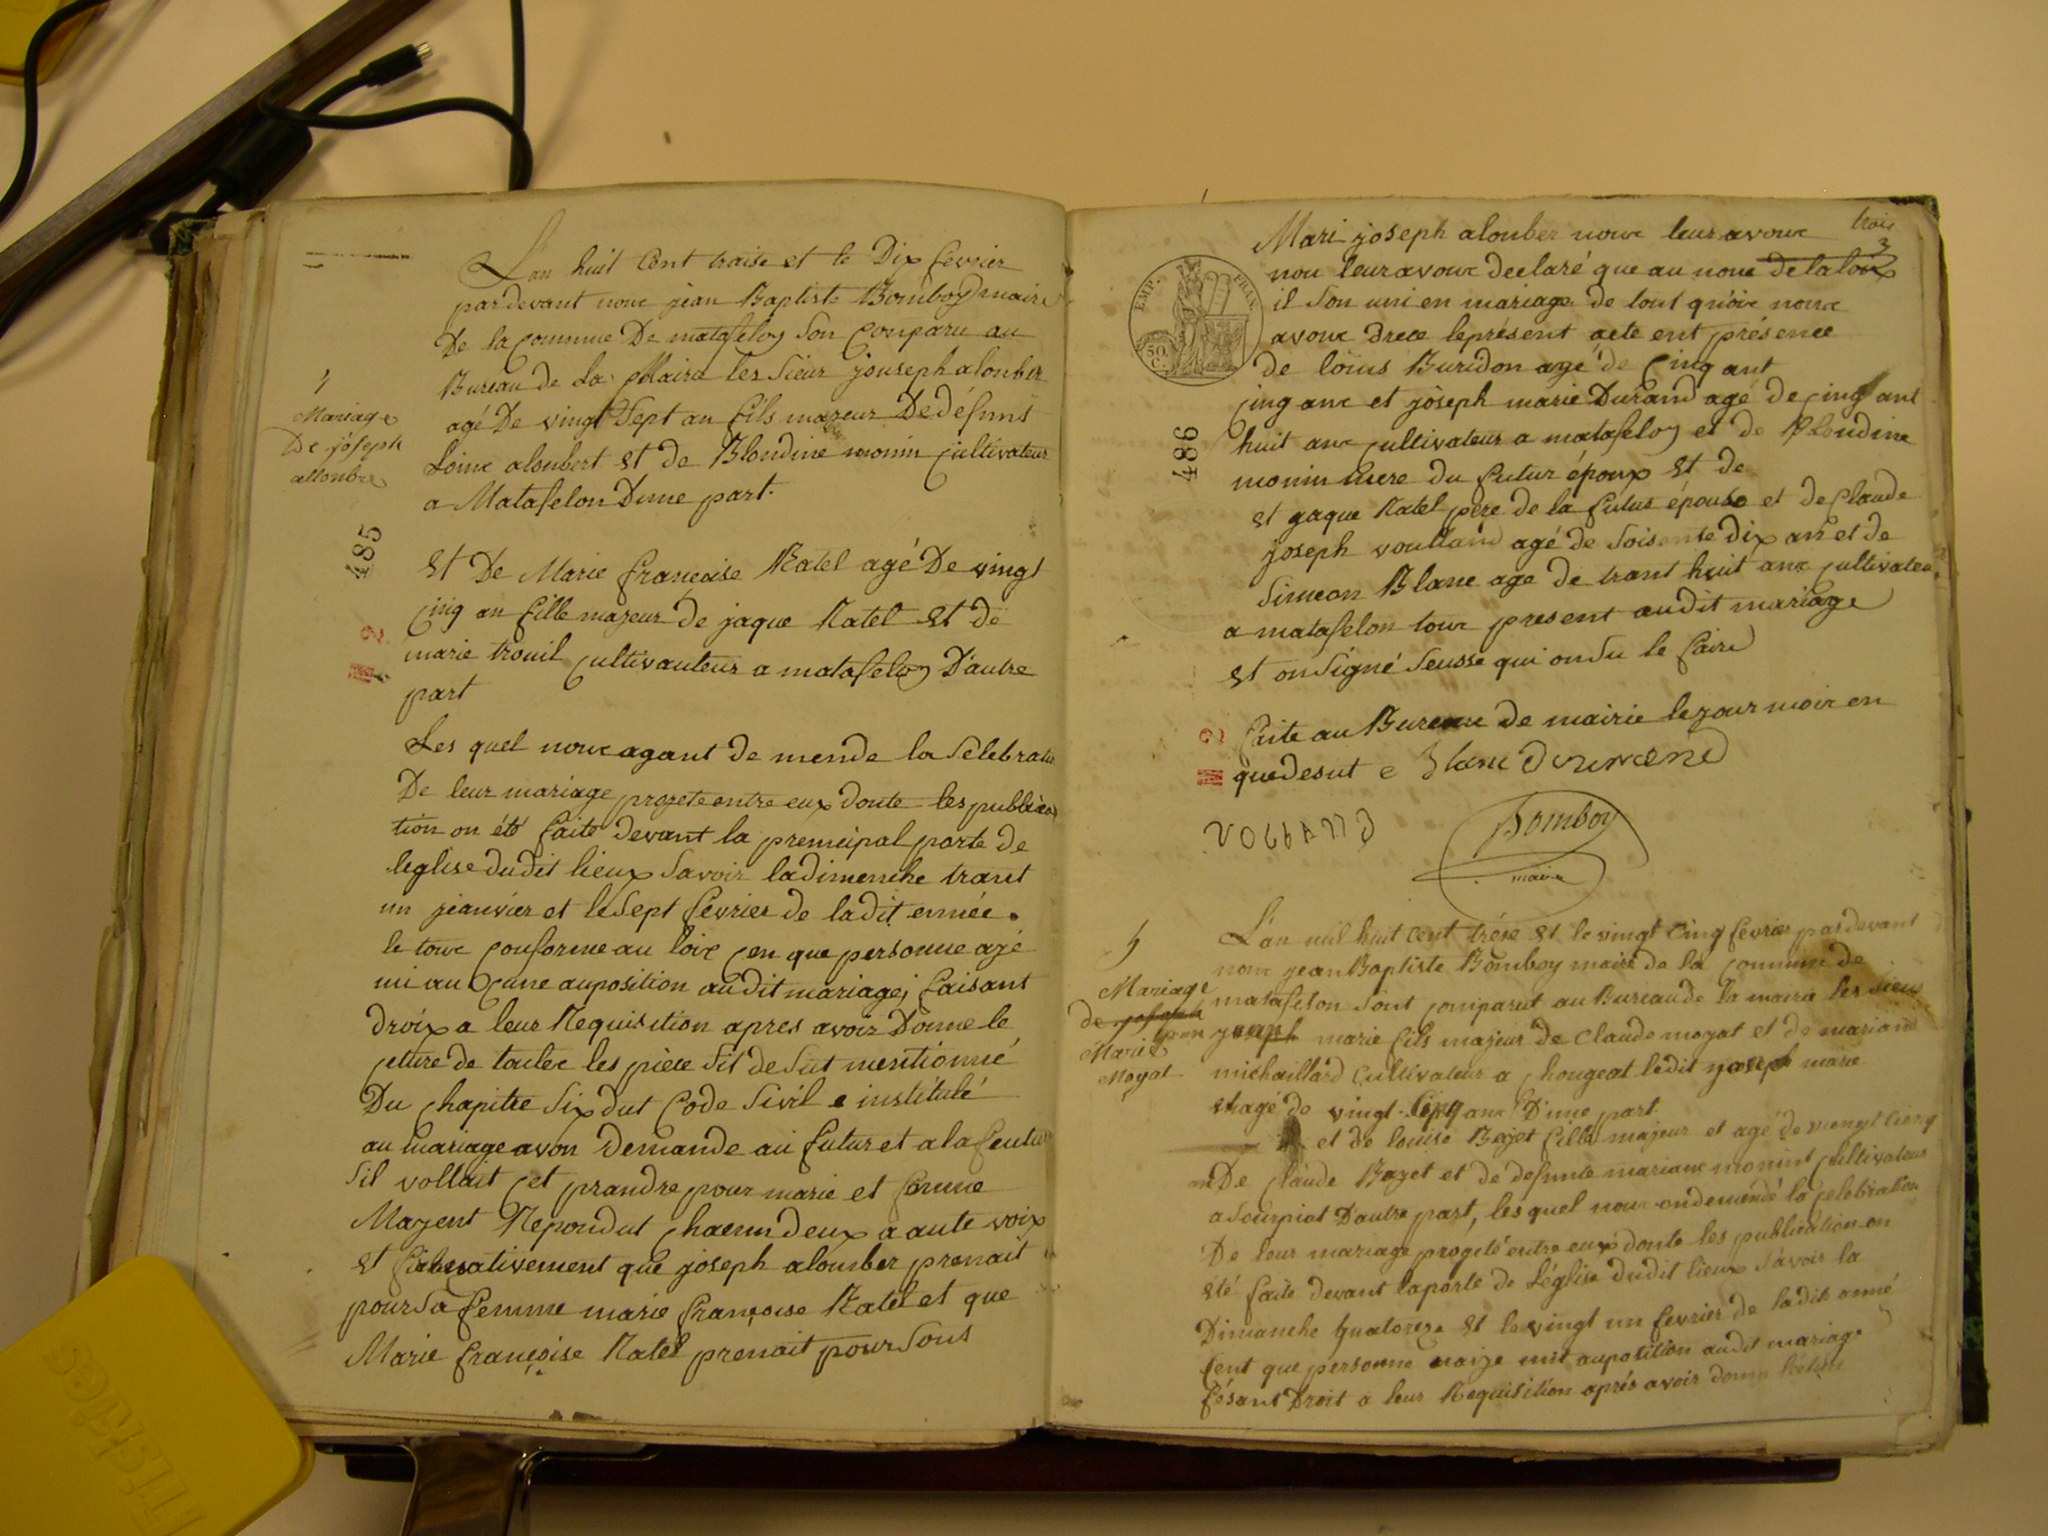 L'an huit Cent traise et le Dix fevrier
par devant nouc jean Baptiste Bomboy maire
De la commune De matafelon Son Comparu au
Bureau de La Mairie les Sieur jouseph alouber
agé De vingt Sept an fils mazeur De défunt
Loiuc aloubert et de Blondine monin cultivateur
a Matafelon Dune part.
4
Mariage
De joseph
allonbre
485
Et De Marie française Ratel agé De vingt
Cinq an fille mazeur de jaque Ratel Et de
marie trouil cultivauteur a matafelon D'autre
part
Les quel nouc agant de mende la Selebration
De leur mariage progete entre eux donte les publica
tion on été faite devant la premcipal porte de
leglise dudit lieux Savoir ladimenche trant
un jeanvier et le Sept fevrier de ladit ennée.
le touc conforme au loix cen que personne azé
mi au Cune auposition audit mariage, faisant
droix a leur Requisition apres avoir Donne le
cture de toutec les pièce Sit de Sut mentionné
Du chapitre Six dut Code Sivil e institulé
au mariage avon Demande au futur et a la feutur
Sil vollait cet prandre pour marie et femme
Mazent Repondut chacun deux a aute voix
Et firmativement que joseph alouber prenait
pour Sa femme marie françoise Ratel et que
Marie françoise Ratel prenait pour Sont
trois
3
Mari joseph alouber nouc leur avouc
nou leur avouc declaré que au nouc de la loix
il Son uni en mariage de tout quoic nouc
avouc drece le présent acte ent présence
de loïus Buridon agé de Cinq ant
cinq anc et joseph marie Durand agé de cinq ant
huit anc cultivateur a matafelon et de Bloudine
monin mere du futur époux Et de
Et gaque Ratel père de la futur épouse et de Claude
joseph voulland agé de Soisente dix an et de
Simeon Blanc age de trant huit anc cultivateur
a matafelon touc present audit mariage
Et on Signé Seusse qui on Su le faire
faite au Bureau de mairie le jour moir en
que desut e Blanc Durand
EMP. FRAN.
50 C.
486
Bomboy
maire
5
Mariage
de joseph
Marie
Moyat
L'an mil huit cent trése et le vingt Cinq fevrier par devant
nouc jean Baptiste Bomboy maire de la commune de
matafelon Sont comparut au Bureau de la mairie les Sieur
joseph marie fils majeur de Claude moyat et de mariane
michaillard Cultivateur a chougeat ledit joseph marie
et agé de vingt cinq anc D'une part
et de louise Bajet fille majeur et agé de vingt Cienq
an De Claude Bazet et de defunte mariane monint cultivateur
a Sourpiat D'autre part, les quel nouc on demendé la celebration
De leur mariage progité entre eux donte les publication on
été faite devant la porte de L'église dudit lieux Savoir la
Dimanche quatorze Et le vingt un fevrier de ladit anné
Cent que personne naize mit auposition audit mariage
fésant Droit a leur Requisition aprés avoir donn